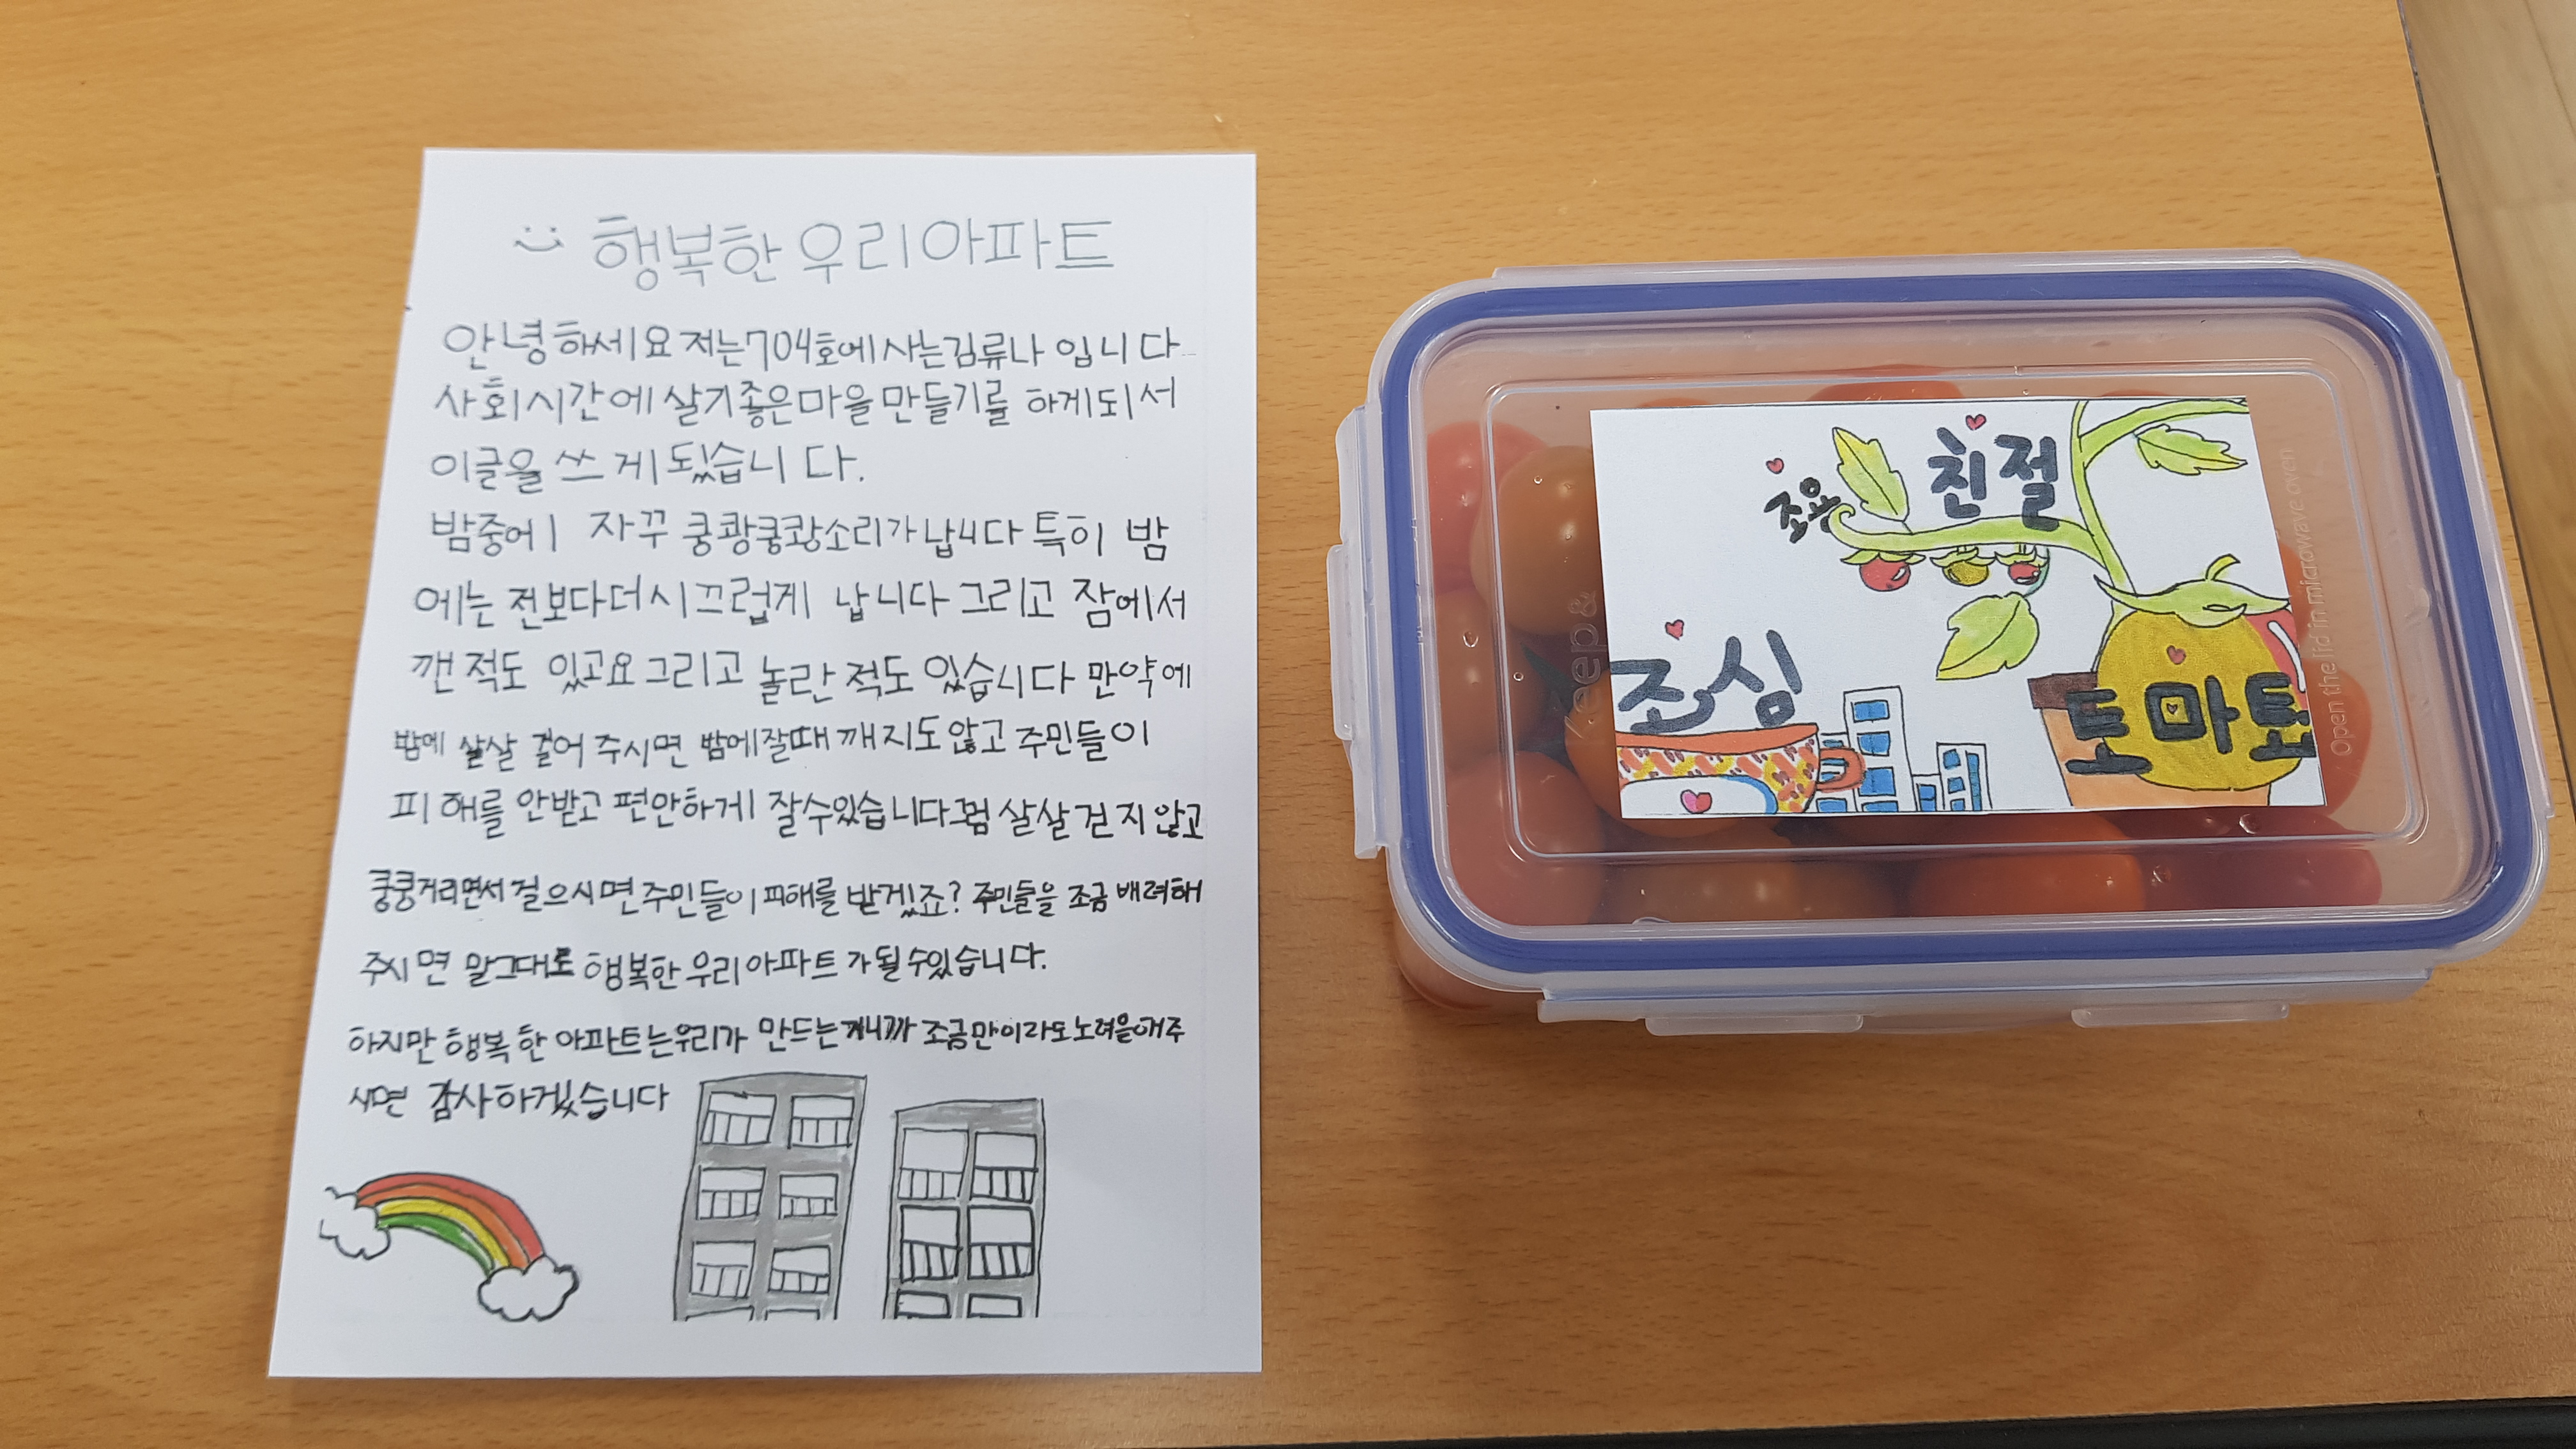 행복한 우리아파트
안녕하세요 저는704호에사는김류나 입니다
사회시간에 살기좋은마을 만들기를 하게되서
이글을 쓰게 됬습니다.
밤중에 자꾸 쿵쾅쿵쾅소리가 납니다 특히 밤
에는 전보다더시끄럽게 납니다 그리고 잠에서
깬적도 있고요 그리고 놀란적도 있습니다 만약에
밤에 살살 걸어 주시면 밤에잘때 깨지도않고 주민들이
피해를 안받고 편안하게 잘수있습니다그럼 살살 걷지 않고
쿵쿵거리면서 걸으시면 주민들이 피해를 받겠죠? 주민들을 조금 배려해
주시면 말그대로 행복한 우리아파트가 될수있습니다.
하지만 행복한 아파트는우리가 만드는거니까 조금만이라도노력을해주
시면 감사하겠습니다
친절
조용
조심
토마토
Keep &
Open the lid in microwave oven